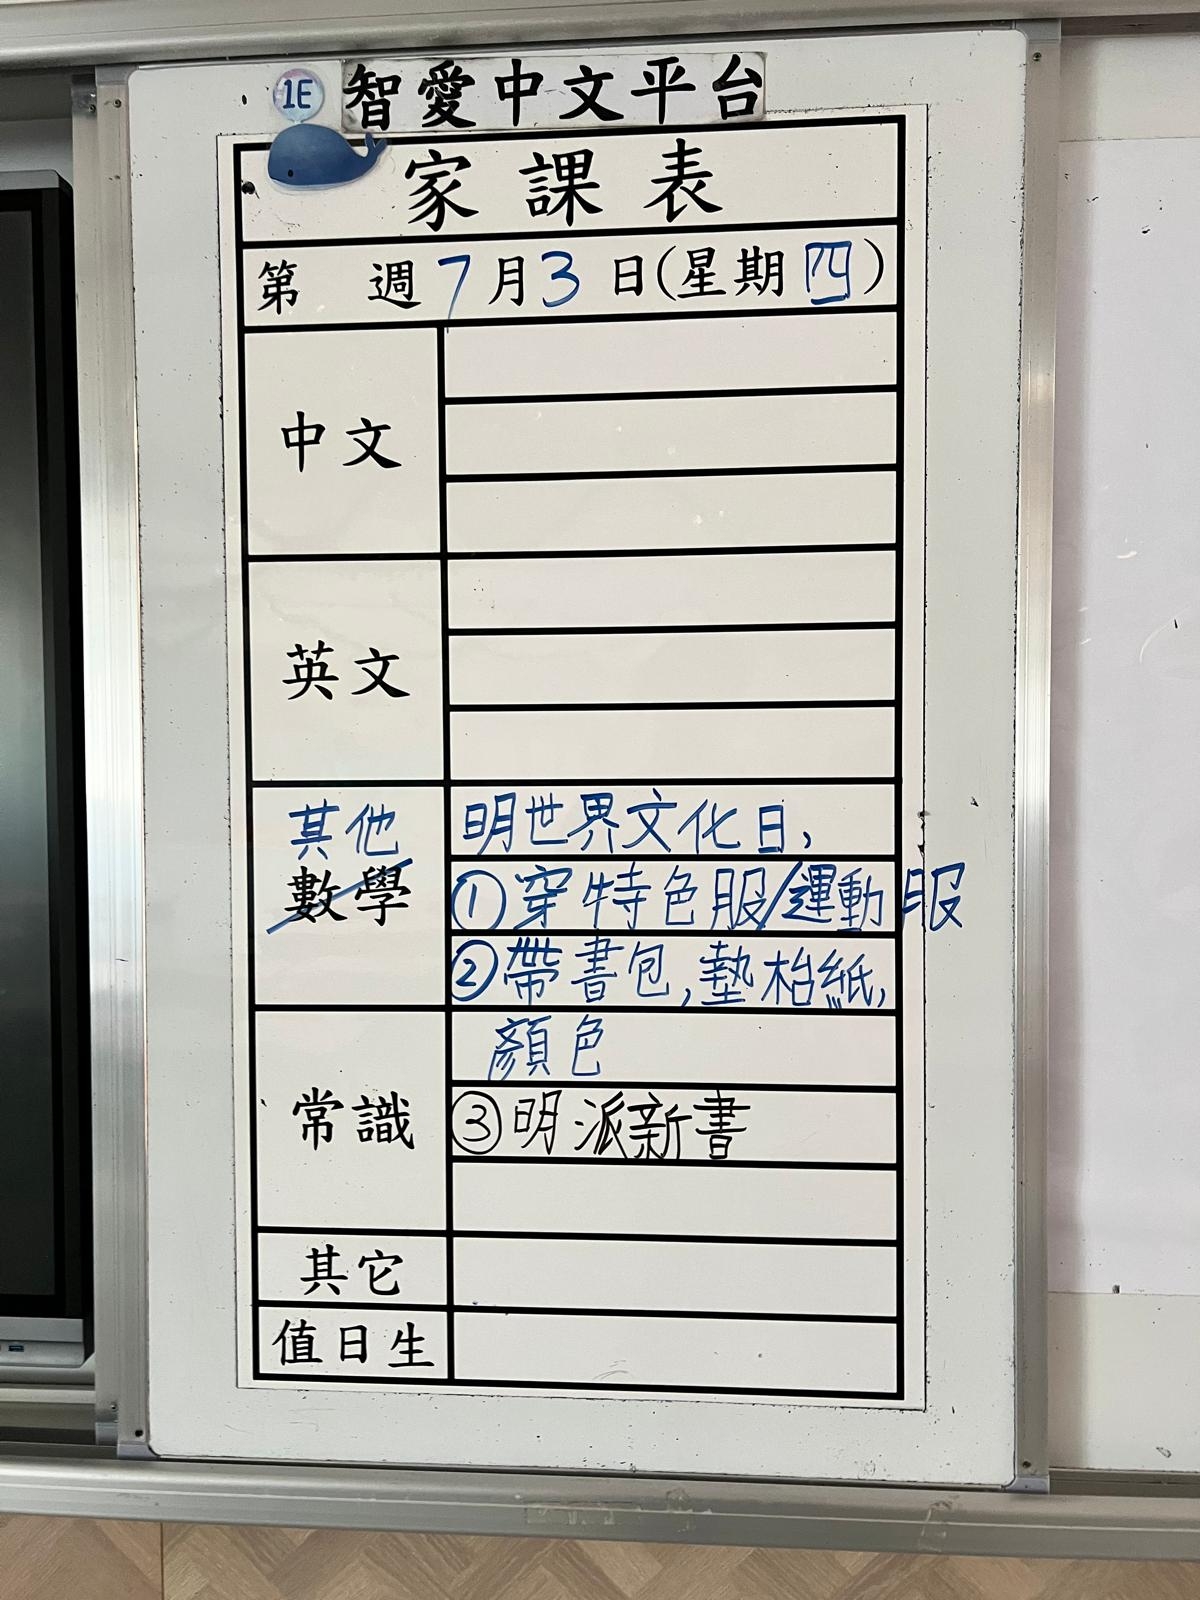 1E 智愛中文平台
家課表
第 週 7月3日(星期四)
中文
英文
其他
數學
明世界文化日,
①穿特色服/運動服
②帶書包,墊枱紙,
顏色
常識
③明派新書
其它
值日生